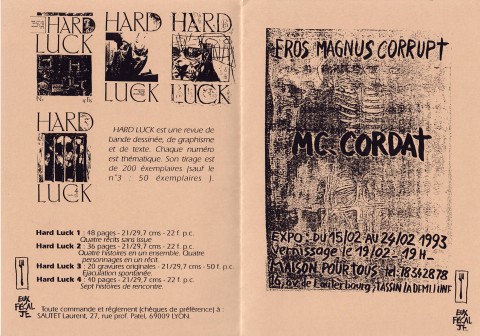 HARD
LUCK
HARD
LUCK
HARD
LUCK
HARD
LUCK
HARD LUCK est une revue de
bande dessinée, de graphisme
et de texte. Chaque numéro
est thématique. Son tirage est
de 200 éxemplaires (sauf le
n°3 : 50 éxemplaires ).
Hard Luck 1 : 48 pages - 21/29,7 cms - 22 f. p.c.
Quatre récits sans issue
Hard Luck 2 : 36 pages - 21/29,7 cms - 22 f. p.c.
Quatre histoires en un ensemble. Quatre
personnages en un récit.
Hard Luck 3 : 20 gravures originales - 21/29,7 cms - 50 f. p.c.
Ejaculation spontanée.
Hard Luck 4 : 40 pages - 21/29,7 cms - 22 f. p.c.
Sept histoires de rencontre.
EUX
FECAL
Toute commande et réglement (chèques de préférence) à :
SAUTET Laurent, 27, rue prof. Patel, 69009 LYON.
EROS MAGNUS CORRUPT
MC CORDAT
EXPO : DU 15/02 AU 24/02 1993
Vernissage le 19/02 : 19H
LIAISON POUR TOUS tel: 78342878
16, av. de Lauterbourg, TASSIN LA DEMI LUNE
EUX
FECAL